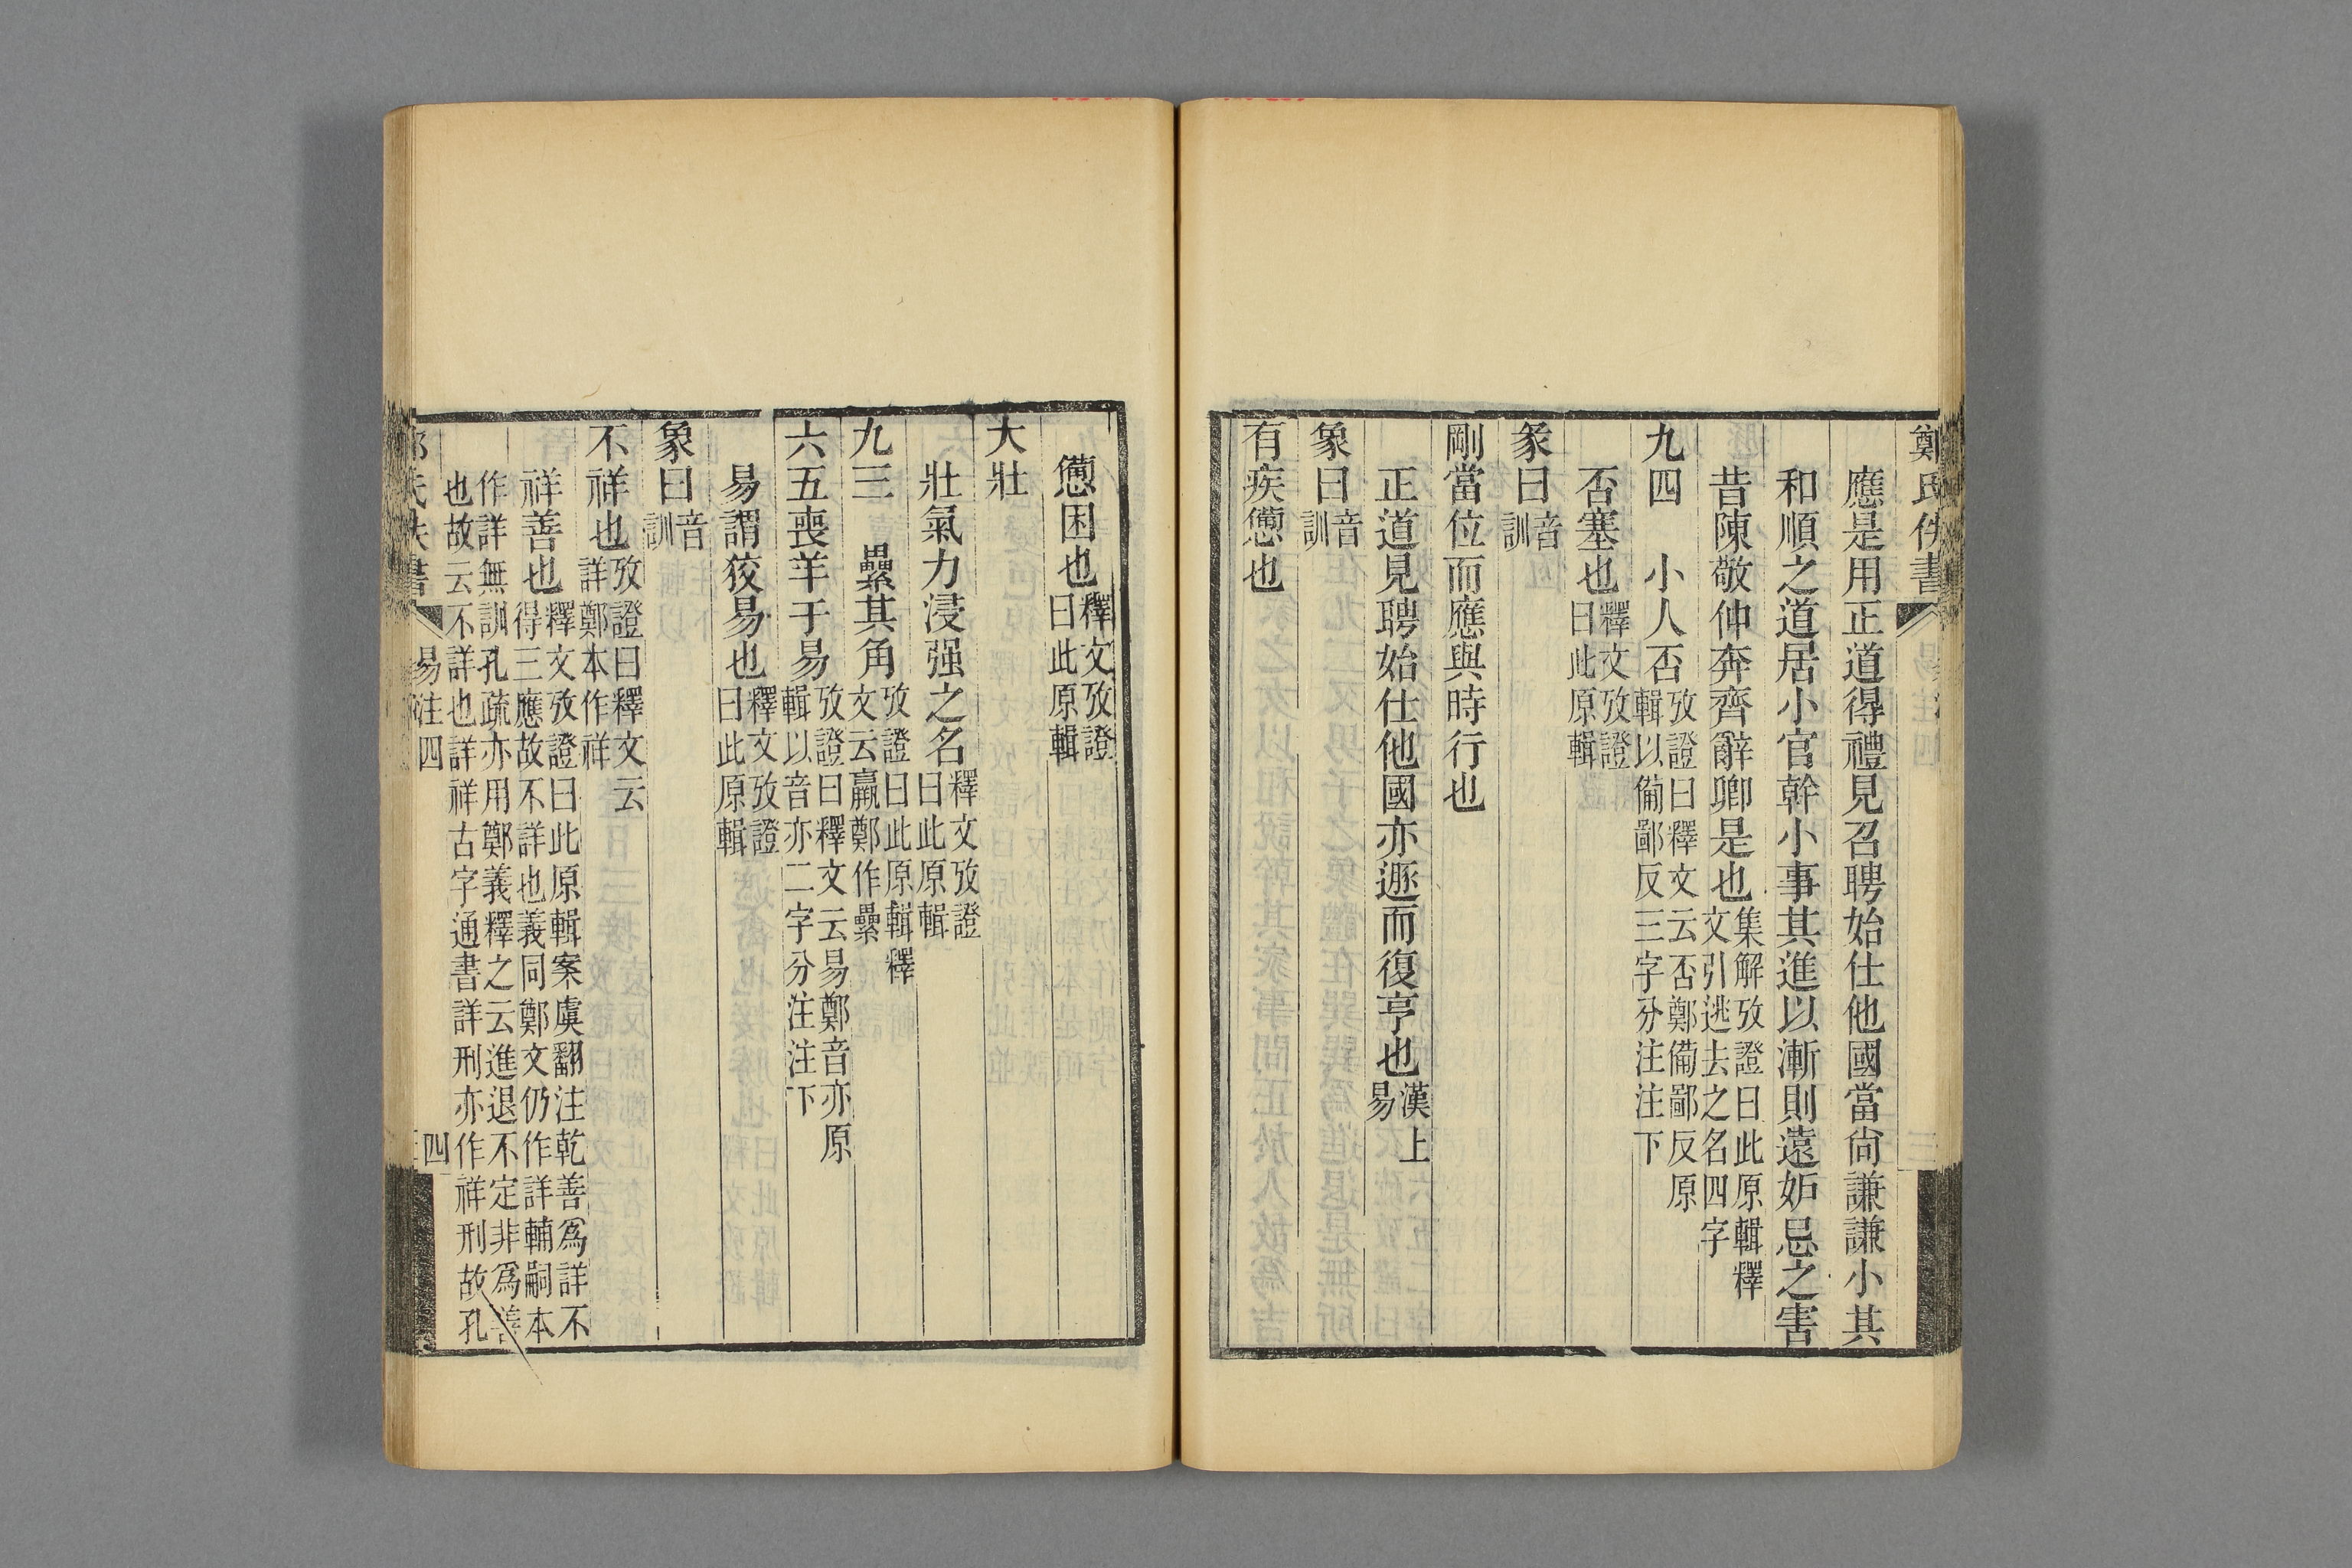 鄭氏佚書
應是用正道得禮見召聘始仕他國當尙謙謙小其
和順之道居小官幹小事其進以漸則遠妒忌之害
昔陳敬仲奔齊辭卿是也集解攷證曰此原輯釋
文引逃去之名四字
九四　小人否攷證曰釋文云否鄭備鄙反原
輯以備鄙反三字分注注下
否塞也釋文攷證
曰此原輯
彖曰音
訓
剛當位而應與時行也
正道見聘始仕他國亦遯而復亨也漢上
易
象曰音
訓
有疾憊也
憊困也釋文攷證
曰此原輯
大壯
壯氣力浸强之名釋文攷證
曰此原輯
九三　纍其角攷證曰此原輯釋
文云羸鄭作纍
六五喪羊于易攷證曰釋文云易鄭音亦原
輯以音亦二字分注注下
易謂狡易也釋文攷證
曰此原輯
象曰音
訓
不祥也攷證曰釋文云
詳鄭本作祥
祥善也釋文攷證曰此原輯案虞翻注乾善爲詳不
得三應故不詳也義同鄭文仍作詳輔嗣本
作詳無訓孔疏亦用鄭義釋之云進退不定非爲善
也故云不詳也詳祥古字通書詳刑亦作祥刑故孔
氏佚書
易注四
四